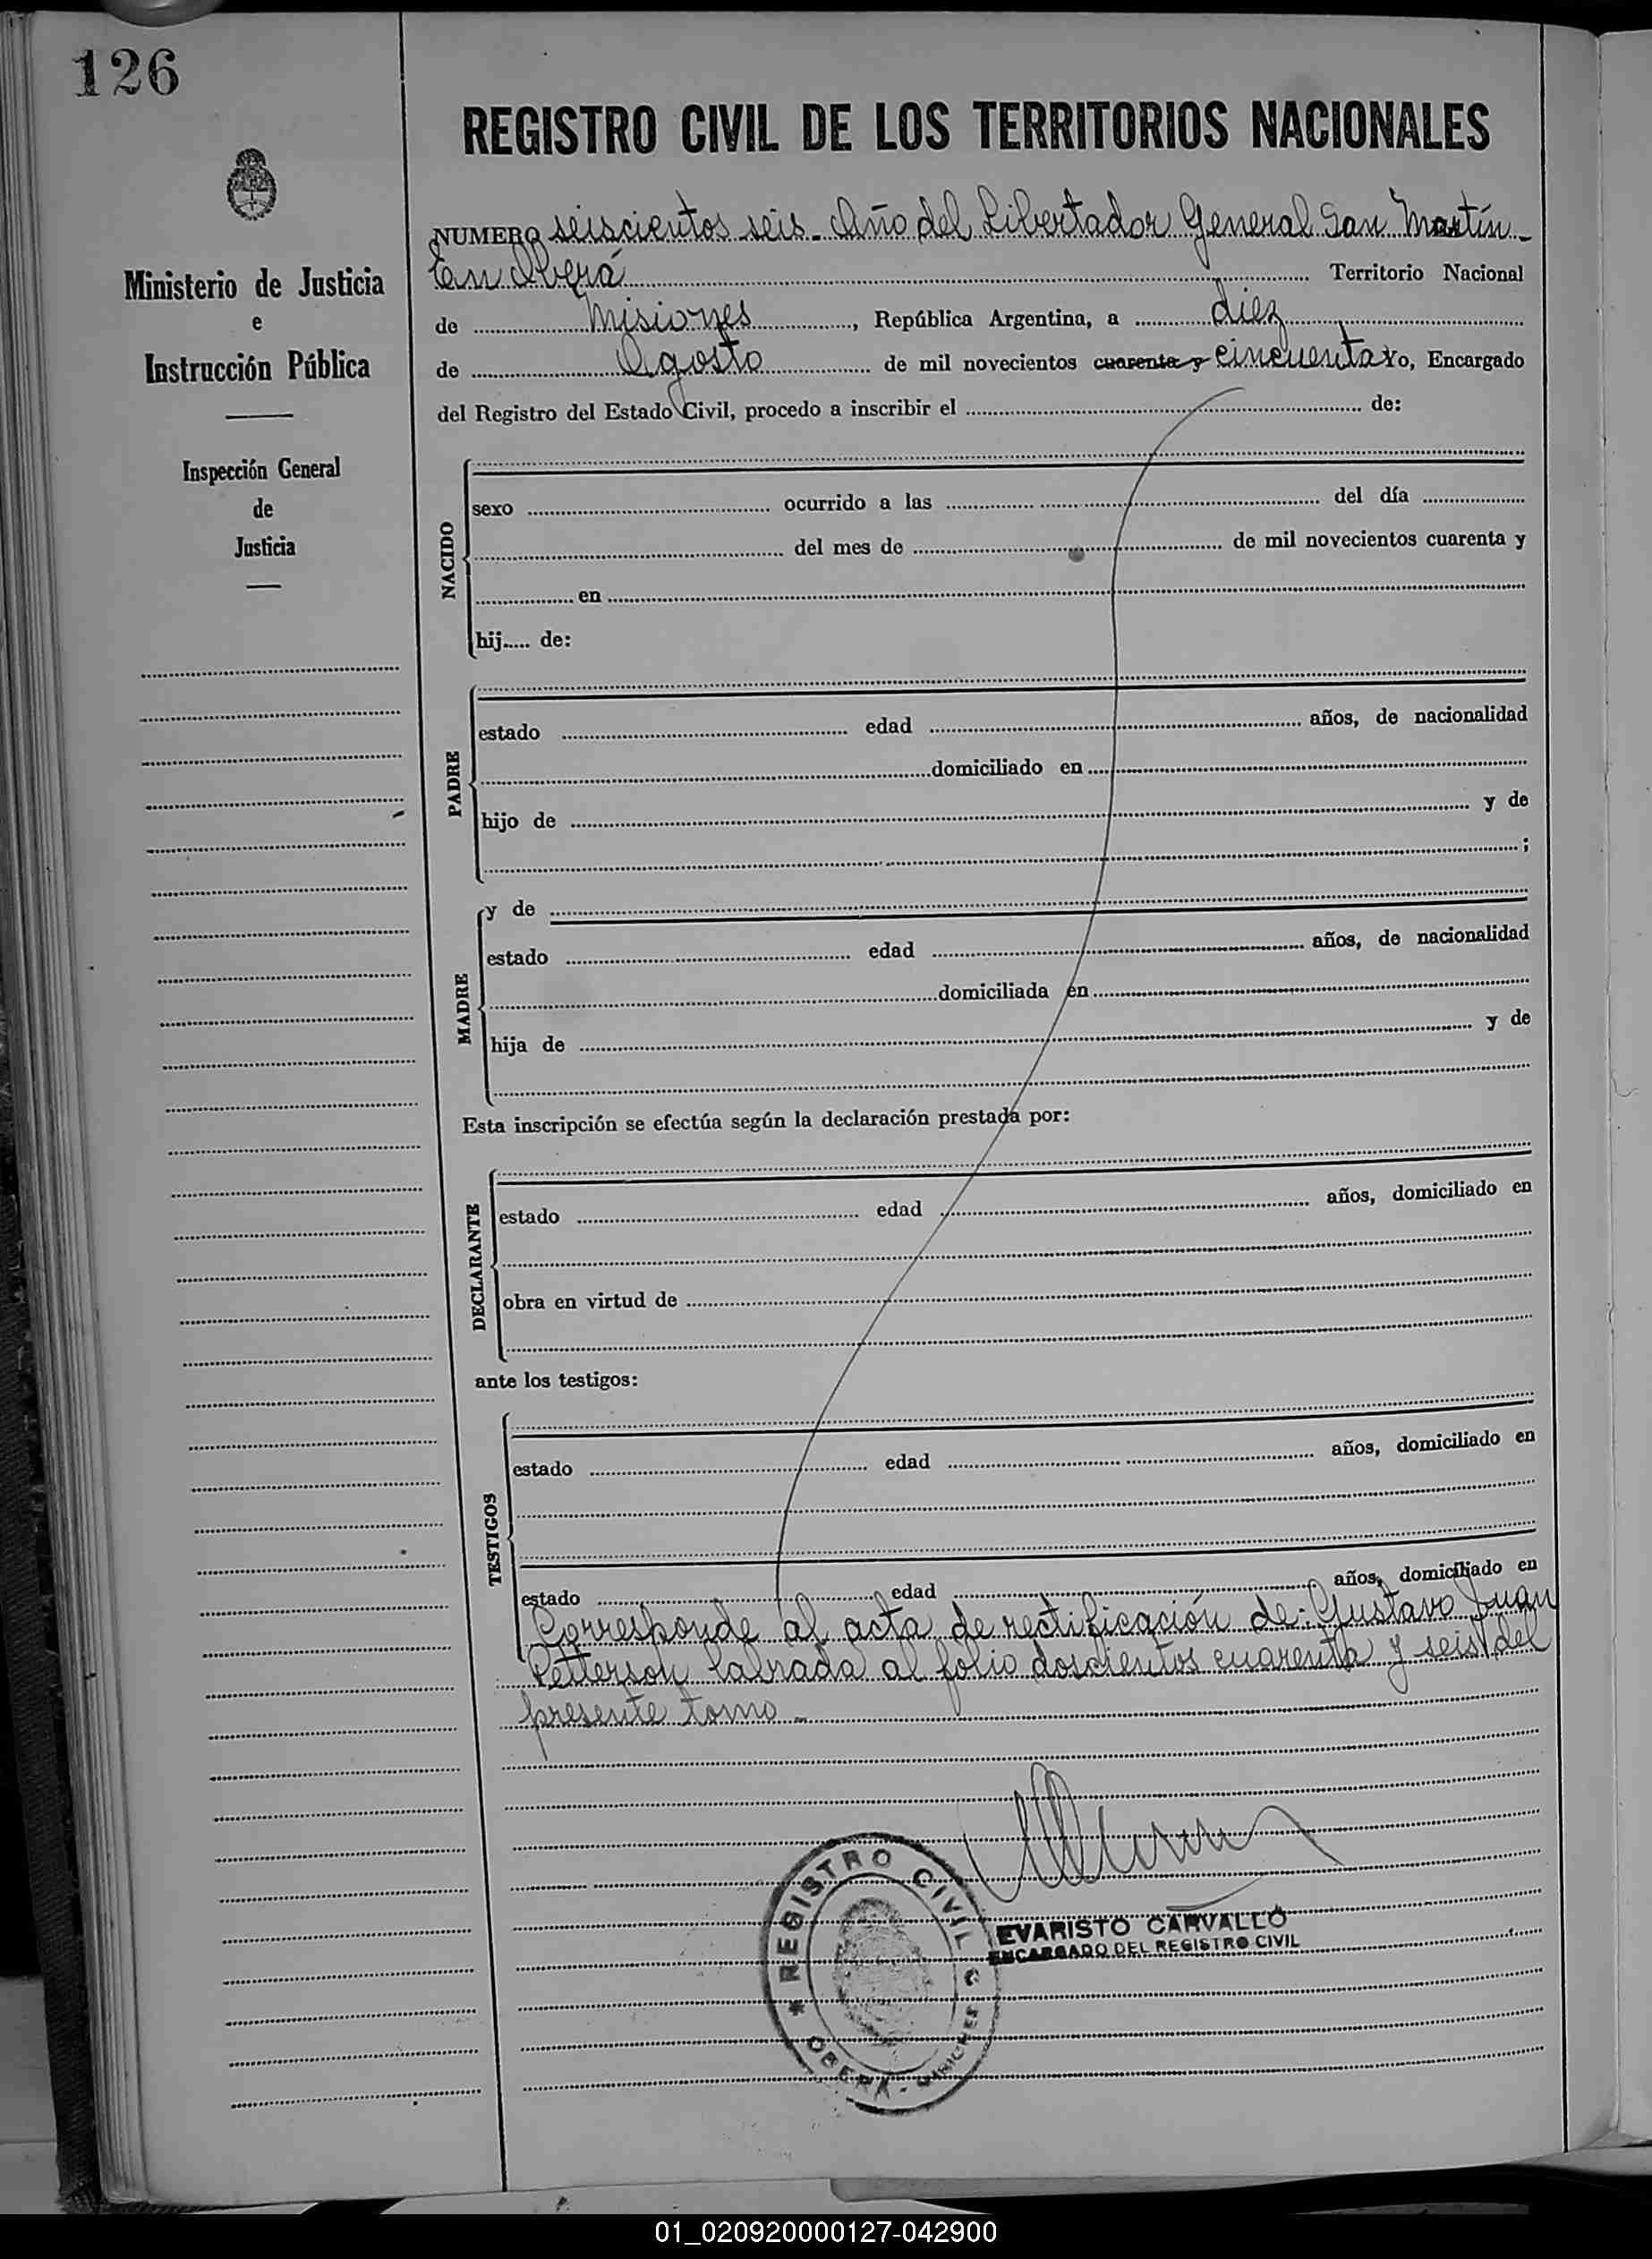 126
REGISTRO CIVIL DE LOS TERRITORIOS NACIONALES
Ministerio de Justicia
e
Instrucción Pública
Inspección General
de
Justicia
NUMERO seiscientos seis. Año del Libertador General San Martín
En Oberá Territorio Nacional
de Misiones, República Argentina, a diez
de Agosto de mil novecientos cuarenta y cincuenta Yo, Encargado
del Registro del Estado Civil, procedo a inscribir el de:
NACIDO
sexo ocurrido a las del día
del mes de de mil novecientos cuarenta y
en
hij..... de:
PADRE
estado edad años, de nacionalidad
domiciliado en
hijo de y de
;
MADRE
y de
estado edad años, de nacionalidad
domiciliada en
hija de y de
Esta inscripción se efectúa según la declaración prestada por:
DECLARANTE
estado edad años, domiciliado en
obra en virtud de
ante los testigos:
TESTIGOS
estado edad años, domiciliado en
estado edad años, domiciliado en
Corresponde al acta de rectificación de: Gustavo Juan
Petterson labrada al folio doscientos cuarenta y seis del
presente tomo -
REGISTRO CIVIL
OBERA - MISIONES
EVARISTO CARVALLO
ENCARGADO DEL REGISTRO CIVIL
01_020920000127-042900